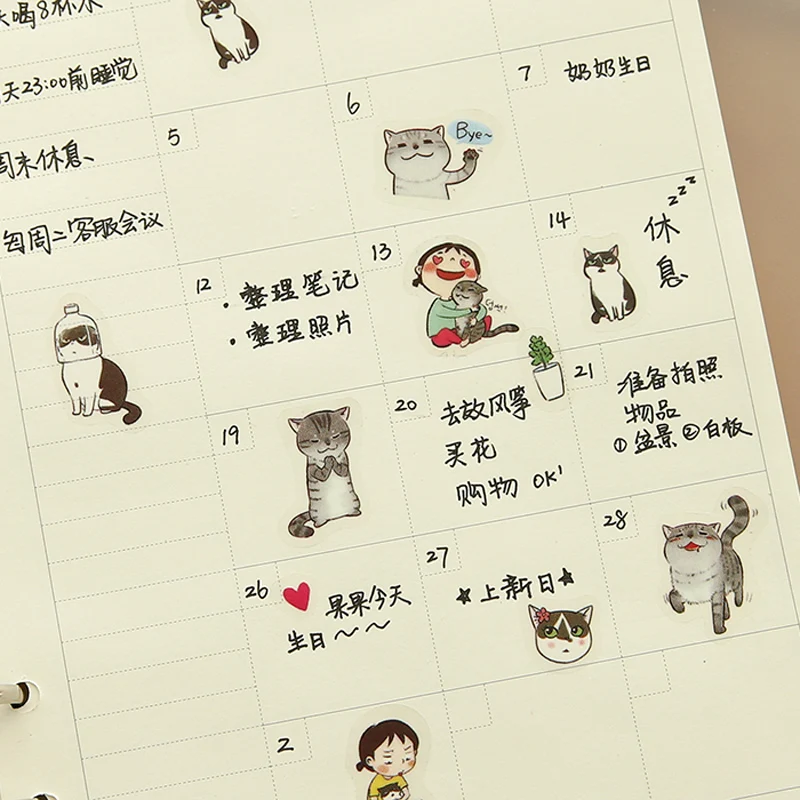 天喝8杯水
天23:00前睡觉
周末休息、
每周二客服会议
5
6
Bye~
7 奶奶生日
12
·整理笔记
·整理照片
13
14 休息
zzz
19
20
去放风筝
买花
购物 OK!
21
准备拍照
物品
①盆景②白板
26
果果今天
生日~~
27
★上新日★
28
2